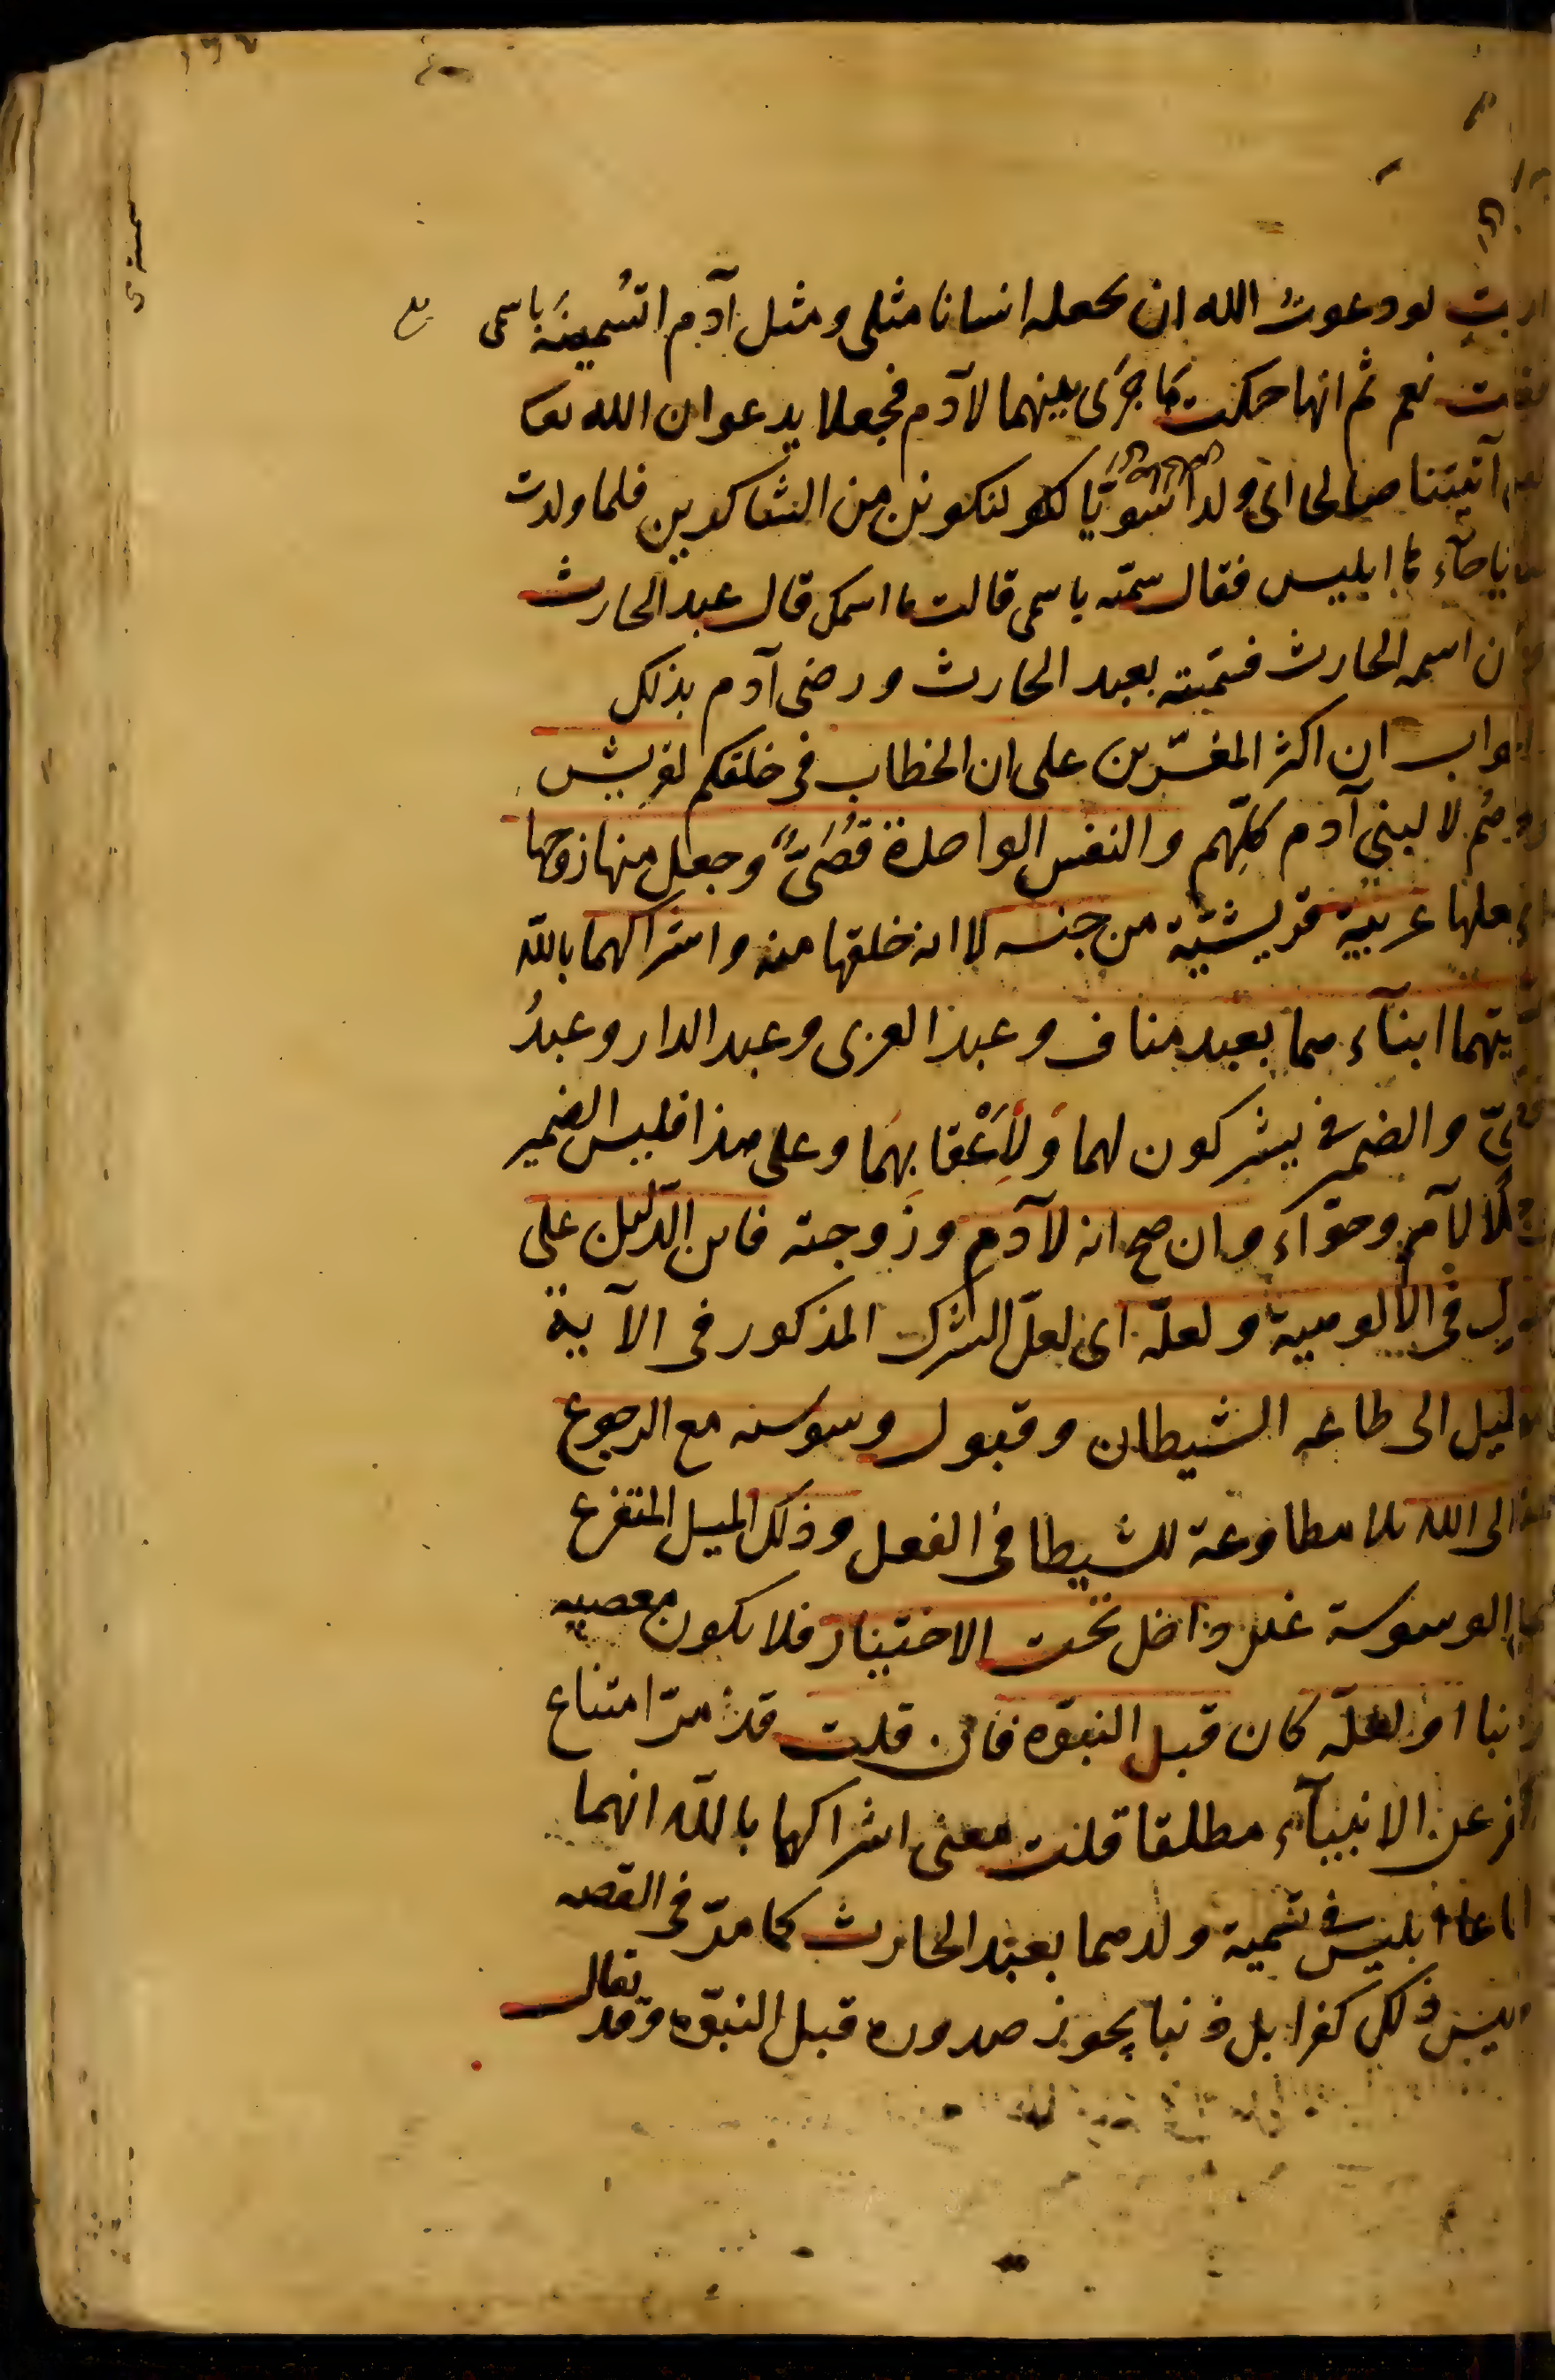 لو دعوت الله ان يجعله انسانا مثلى ومثل آدم اتسمينه باسمى
نعم ثم انها حكت ما جرى بينهما لآدم فجعلا يدعوان الله
آتيتنا صالحا اى ولدا سويا لنكونن من الشاكرين فلما ولدت
ابليس فقال سمته باسمى قالت ما اسمك قال عبد الحارث
ان اسمه الحارث فسمته بعبد الحارث ورضى آدم بذلك
ان اكثر المفسّرين على ان الخطاب فى خلقكم لقريش
لا لبنى آدم كلّهم والنفس الواحدة قُصَىّ وجعل منها زوجها
عربية قريشيّة من جنسه لا انه خلقها منه واشراكهما بالله
ابناء هما بعبد مناف وعبد العزى وعبد الدار وعبدُ
والضمير فى يشركون لهما وَلِأَعْقابِهِمَا وعلى هذا فليس الضمير
لآدم وحوّاء وان صح انه لآدم وزوجته فاين الدّليل على
فى الالوهية ولعلّه اى لعلّ الشرك المذكور فى الآية
الى طاعه الشيطان وقبول وسوسه مع الرجوع
الى الله بلا مطاوعة للشيطا فى الفعل وذلك الميل المتفرع
الوسوسة غير داخل تحت الاختيار فلا يكون معصيه
او لعلّه كان قبل النبوّه فان قلت قد مرّ امتناع
عن الانبياء مطلقا قلت معنى اشراكهما بالله انهما
ابليس فى تسمية ولدهما بعبد الحارث كما مرّ فى القصه
وليس ذلك كفرا بل ذنبا يجوز صدوره قبل النبوّه وقد
يقال